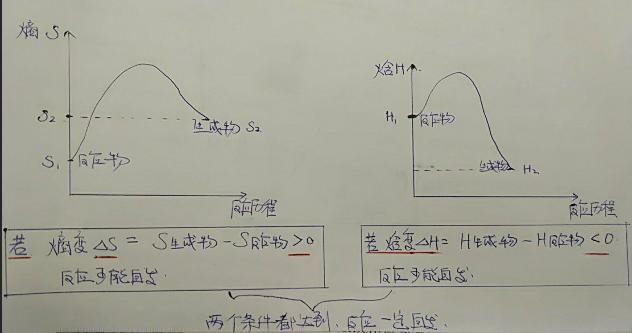 熵 S
S₂
生成物 S₂
S₁
反应物
反应历程
焓H
H₁
反应物
生成物 H₂
反应历程
若 熵变△S = S生成物 - S反应物 >0
反应可能自发.
若焓变△H = H生成物 - H反应物 <0
反应可能自发.
两个条件都达到，反应一定自发.